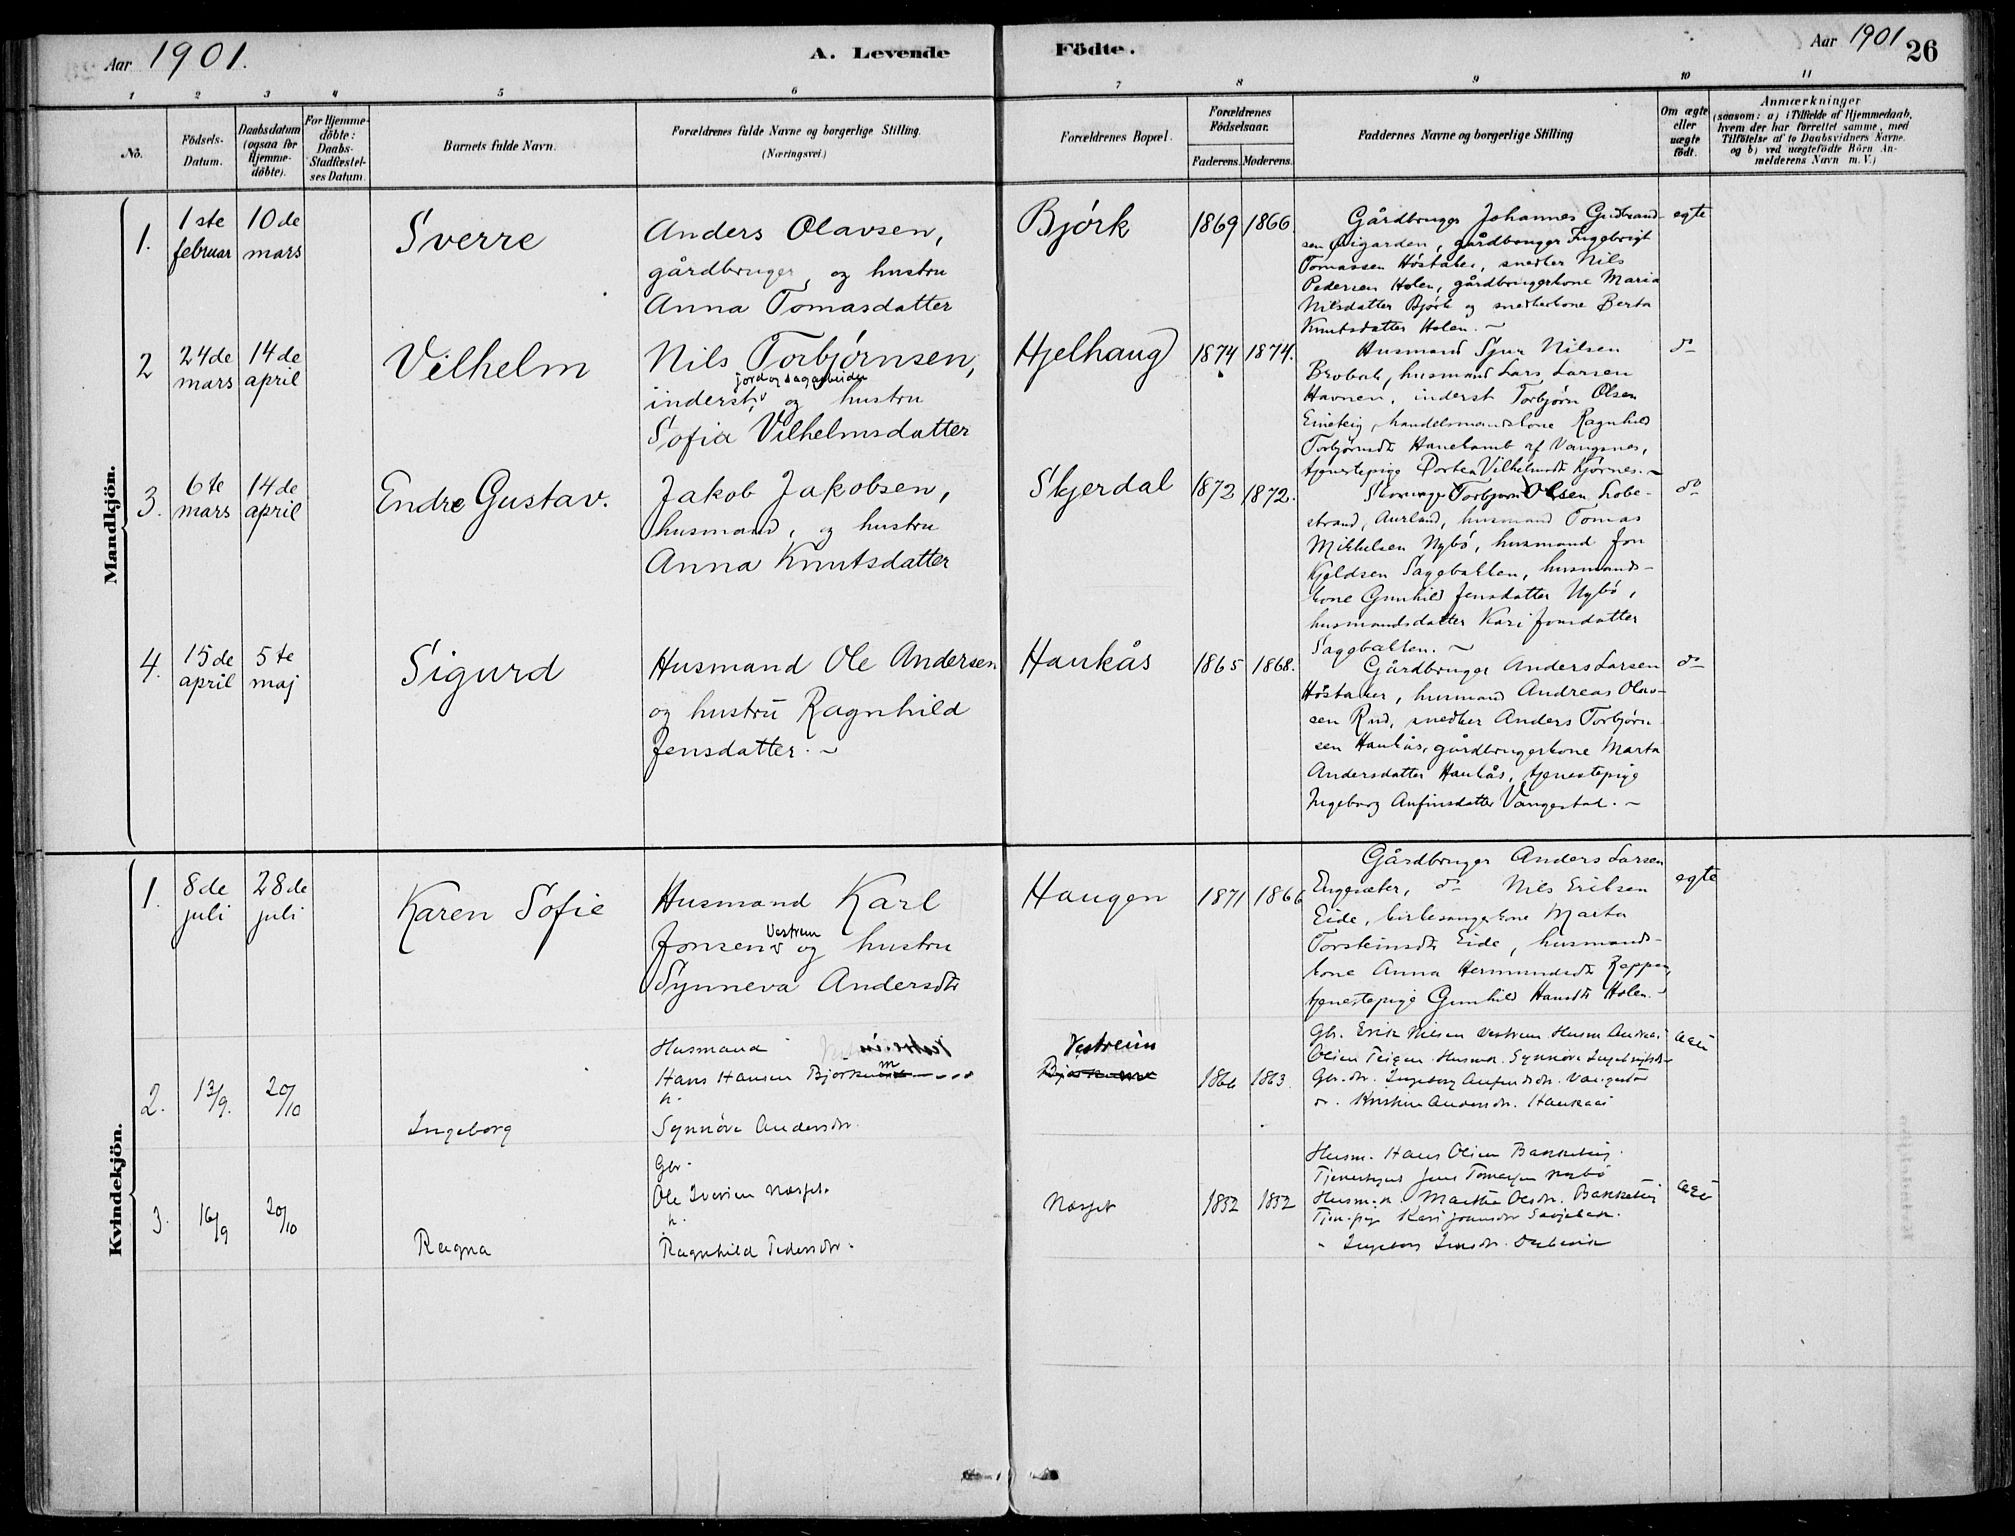 Aar 1901.
A. Levende
Födte.
Aar 1901
26
1 2 3 4 5 6 7 8 9 10 11
No.
Födsels-
Datum.
Daabsdatum
(ogsaa for
Hjemme-
døbte).
For Hjemme-
döbte:
Daabs-
Stadfæstel-
ses Datum.
Barnets fulde Navn.
Forældrenes fulde Navne og borgerlige Stilling.
(Næringsvei)
Forældrenes Bopæl.
Forældrenes
Födselsaar.
Faderens. Moderens.
Faddernes Navne og borgerlige Stilling
Om ægte
eller
uægte
født.
Anmærkninger
(saasom: a) i Tilfælde af Hjemmedaab,
hvem der har forrettet samme, med
Tilföielse af to Daabsvidners Navne.
og b) ved uægtefödte Börn An-
melderens Navn m. V.)
Mandkjön.
1.
1ste
februar
10de
mars
Sverre
Anders Olavsen,
gårdbruger, og hustru
Anna Tomasdatter
Bjørk
1869 1866.
Gårdbruger Johannes Gudbrand-
sen Øvigarden, gårdbruger Ingebrigt
Tomassen Høstaker, snedker Nils
Pedersen Holen, gårdbrugerkone Maria
Nilsdatter Bjørk og snedkerkone Berta
Knutsdatter Holen.
egte
2
24de
mars
14de
april
Vilhelm
Nils Torbjørnsen,
jord og sagarbeider
inderst, og hustru
Sofia Vilhelmsdatter
Hjelhaug
1874 1874.
Husmand Sjur Nilsen
Brobak, husmand Lars Larsen
Havnen, inderst Torbjørn Olsen
Eineteig, handelsmandskone Ragnhild
Torbjørnsdtr Hanekamb af Vangsnes,
tjenestepige Dortea Vilhelmsdtr Kjørnes.
do
3.
6te
mars
14de
april
Endre Gustav.
Jakob Jakobsen,
husmand, og hustru
Anna Knutsdatter
Skjerdal
1872 1872.
Torbjørn Olsen Lobe-
strand, Aurland, husmand Tomas
Mikkelsen Nybø, husmand Jon
Kjeldsen Saggbakken, husmands-
kone Gunhild Jensdatter Nybø,
husmandsdatter Kari Jonsdatter
Saggbakken.
do
4.
15de
april
5te
maj
Sigurd
Husmand Ole Andersen
og hustru Ragnhild
Jensdatter.
Haukås
1865 1868.
Gårdbruger Anders Larsen
Høstaker, husmand Andreas Olav-
sen Rud, snedker Anders Torbjørn
sen Haukås, gårdbrugerkone Marta
Andersdatter Haukås, tjenestepige
Ingeborg Anfinsdatter Vangestad.
do
Kvindekjön.
1.
8de
juli
28de
juli
Karen Sofie
Husmand Karl
Vestrem
Jonsen og hustru
Synneva Andersdtr
Haugen
1871 1866
Gårdbruger Anders Larsen
Engesæter, do Nils Eriksen
Eide, kirkesangerkone Marta
Torsteinsdtr Eide, husmands-
kone Anna Hermundsdtr Reppen,
tjenestepige Gunhild Hansdtr Holen.
egte
2.
13/9.
20/10
Ingeborg
Husmand Vestreim
Hans Hansen
h.
Synnöve Andersdr.
Vestreim
1866 1863.
Gbr. Erik Nilsen Vestrem Husm Andreas
Olsen Teigen. Husmk. Synnöve Ingebrigtsdr
Gbr.dr. Ingeborg Anfindsdr. Vangestad
dr. Kristine Andersdr. Haukaas
ægte
3.
16/9
20/10
Ragna
Gbr.
Ole Iversen Næsset.
h.
Ragnhild Pedersdr.
Næsset
1852 1852
Husm. Hans Olsen Bakketeig.
Jens Tomassen Nybö
Husm.k. Martha Olsdr. Bakketeig
Tjen.pig Kari Jonsdr
" Ingeborg
ægte